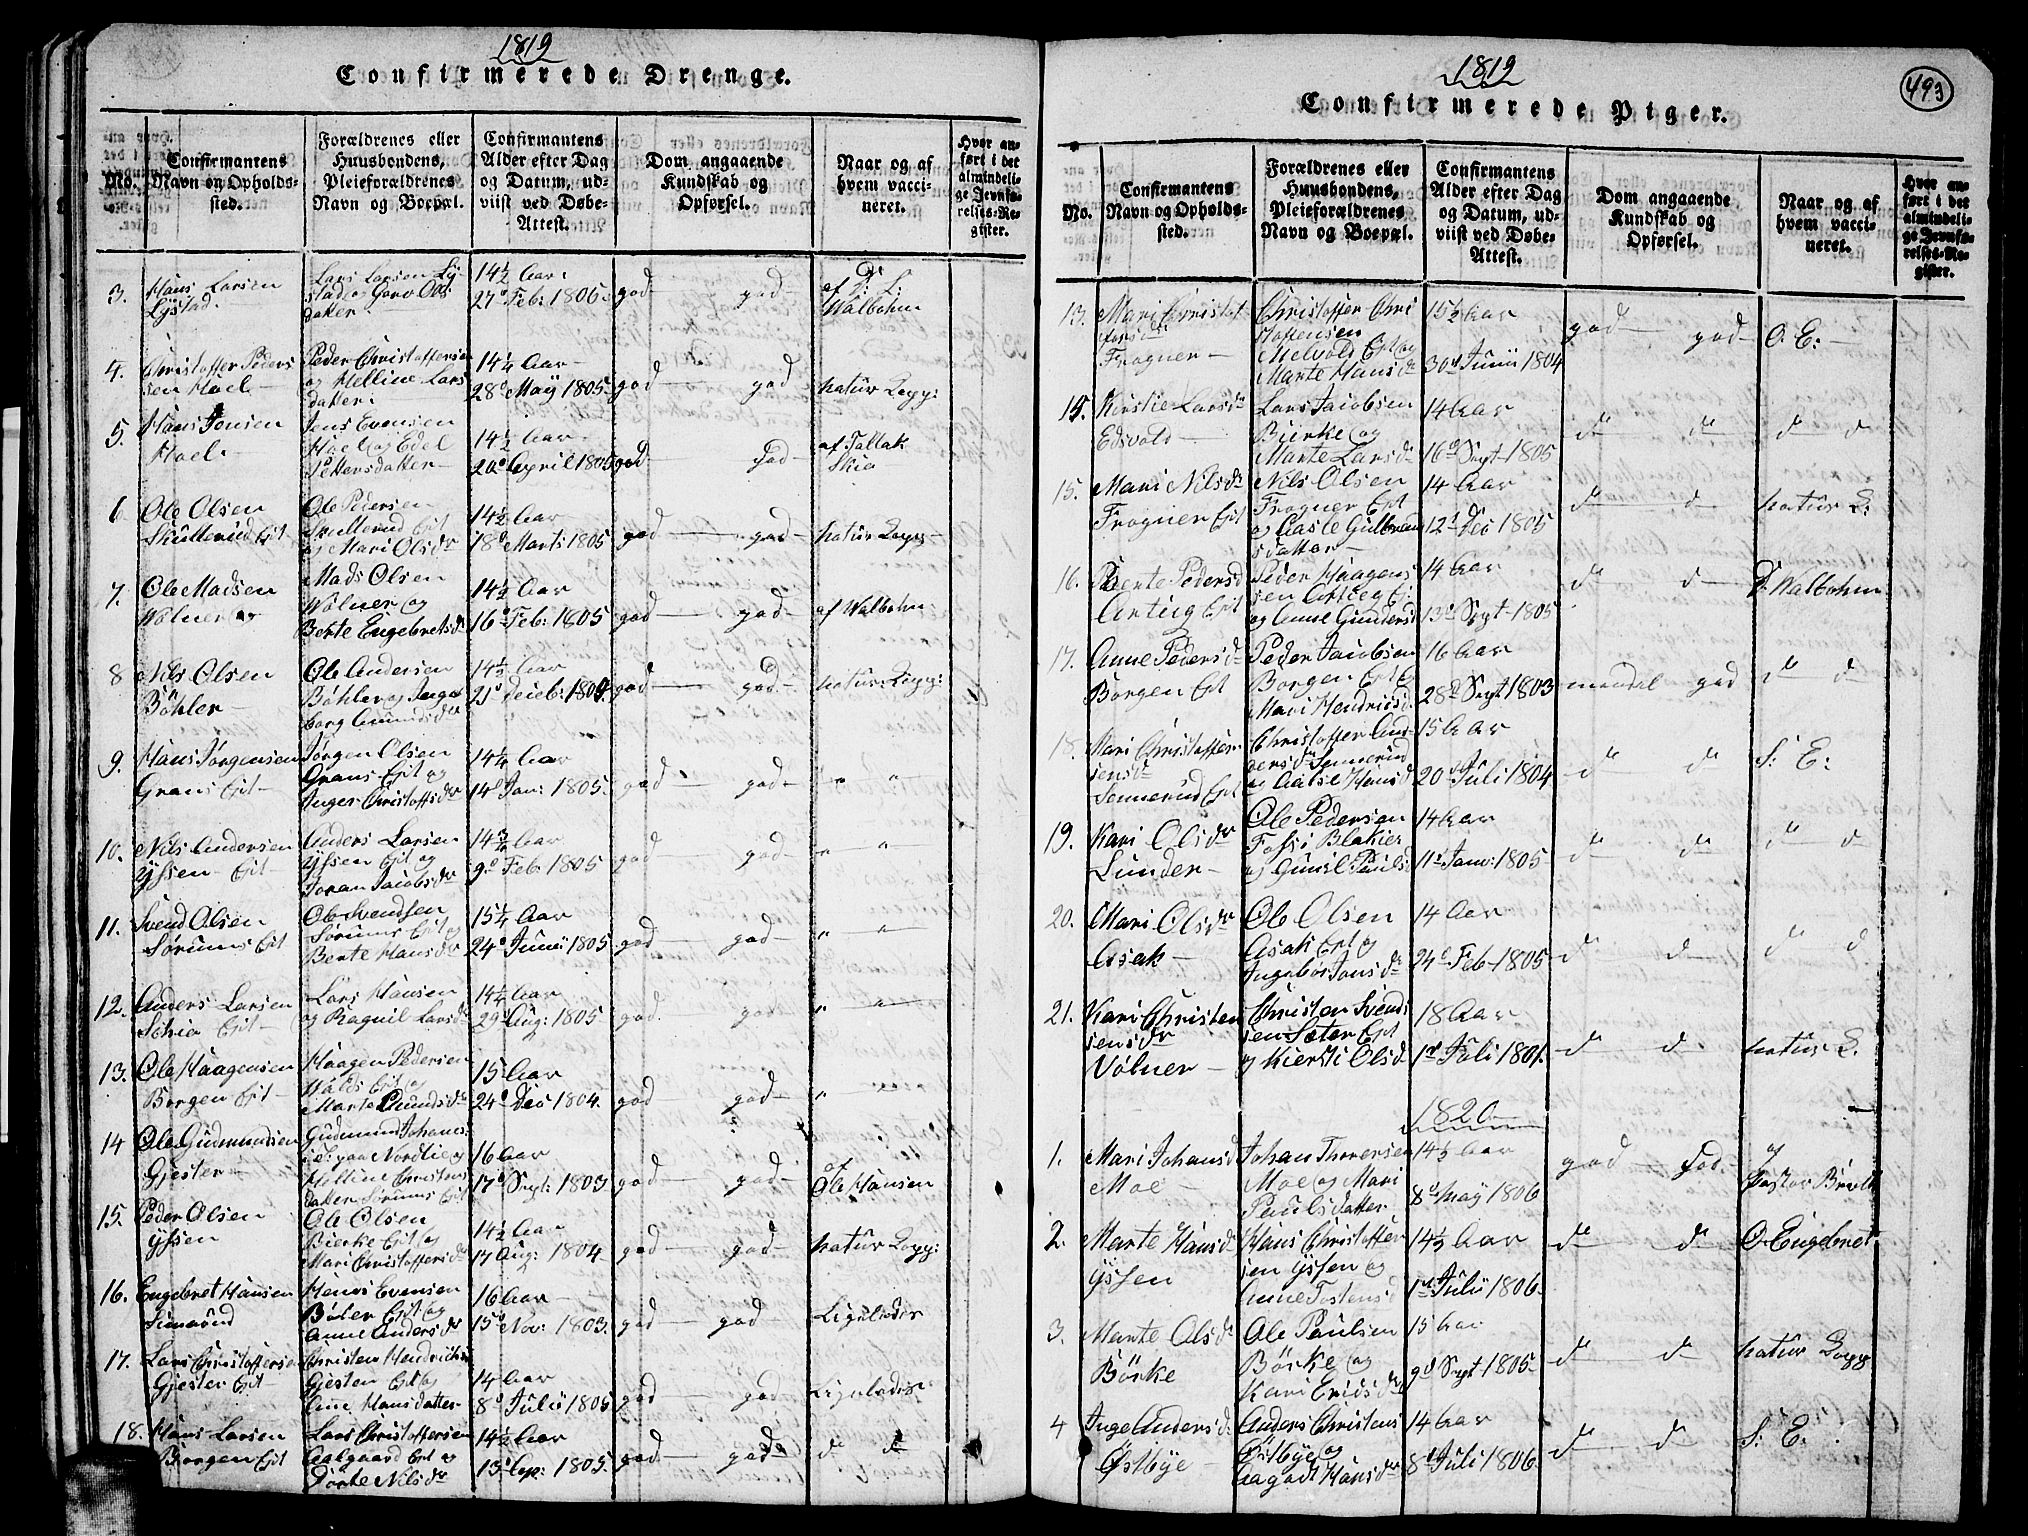 1819
Confirmerede Drenge.
No.
Confirmantens
Navn og Opholds-
sted.
Forældrenes eller
Huusbondens,
Pleieforældrenes
Navn og Boepæl.
Confirmantens
Alder efter Dag
og Datum, ud-
viist ved Døbe-
Attest.
Dom angaaende
Kundskab og
Opførsel.
Naar og af
hvem vacci-
neret.
Hvor an-
ført i det
almindeli-
ge Jevnfø-
relses-Re-
gister.
3. Hans Larsen
Lystad.
Lars Larsen Ly-
14½ Aar
27d Feb: 1806. god god
af
Walbohm
4. Christoffer Peders
sen Hoel
Peder Christoffersen
og Helline Lars
datter
14¼ Aar
28d May 1805. god god natur Kopp:
5. Hans Jensen
Hoel
Jens Evensen
Hoel og Edel
Pettersdatter
14½ Aar
20d April 1805 god god
af Tallak
Skia
6 Ole Olsen
Skullerud Eit
Ole Pedersen
Skullerud Eit
og Mari Olsdr
14½ Aar
18d Marts 1805 god god natur Kopp
7. Ole Madsen
Wølner
Mads Olsen
Wølner og
Berte Engebretsdr
14½ Aar
16d Feb: 1805 god god af Walbohm
8 Nils Olsen
Bøhler
Ole Andersen
Bøhler og Inge
borg Amundsdr
14½ Aar
21d Deceb: 1804. god god natur Kopp:
9. Hans Jørgensen
Grans Eit
Jørgen Olsen
Grans Eit og
Inger Christoffsdr
14¼ Aar
14d Jan: 1805. god god " "
10. Nils Andersen
Yssen Eit
Anders Larsen
Yssen Eit og
Joran Jacobsdr
14¾ Aar
9d Feb. 1805 god god " "
11. Svend Olsen
Sørums Eit
Ole Svendsen
Sørums Eit og
Berte Hansdr
15¼ Aar
24d Junii 1805 god god " "
12. Anders Larsen
Schia Eit
Lars Hansen
og Raguil Larsdr
14¼ Aar
29d Aug: 1805 god. god " "
13. Ole Haagensen
Borgen Eit
Haagen Pedersen
Walds Eit og
Marte Amundsdr
15 Aar
24d Dec 1804. god god "
14 Ole Gudmundsen
Gjester
Gudmund Johans
Helline Christens
datter Sørums Eit
16 Aar
17d Sept: 1803 god god
af
Ole Hansen
15. Peder Olsen
Yssen
Ole Olsen
Bierke Eit og
Mari Christoffersdr
14½ Aar
17 Aug: 1804. god god natur Kopp:
16. Engebret Hansen
Hans Evensen
Bøler Eit og
Anne Andersdr
16 Aar
15d Nov: 1803. god god Ligeledes
17. Lars Christoffersen
Gjester Eit
Christen Hendrichs
Gjesten Eit og
Ane Hansdatter
14 Aar
8d Julii 1805 god god Ligeledes
18. Hans Larsen
Borgen Eit
Lars Christoffersen
Aalgaard Eit og
Dorte Nilsdr
14½ Aar
13d Ap: 1805. god god d d
1819
493
Confirmerede Piger.
No.
Confirmantens
Navn og Opholds-
sted.
Forældrenes eller
Huusbondens,
Pleieforældrenes
Navn og Boepæl.
Confirmantens
Alder efter Dag
og Datum, ud-
viist ved Døbe-
Attest.
Dom angaaende
Kundskab og
Opførsel.
Naar og af
hvem vacci-
neret.
Hvor an-
ført i det
almindeli-
ge Jevnfø-
relses-Re-
gister.
13. Mari Christof
fersdr
Frogner
Christoffer Chri
stoffensen
Melvold Eit og
Marte Hansdr
15½ Aar
30d Junii 1804 god god O. E:
15. Kirstie Larsdr
Edsvold
Lars Jacobsen
Bierke og
Marte Larsdr
14 Aar
16d Sept 1805 d d d d
15. Mari Nilsdr
Frogner Eit
Nils Olsen
Frogner Eit
og Aaste Gulbran
sdatter
14 Aar
12d Dec 1805 d d natur K:
16. Berte Pedersd
Arteig Eit
Peder Haagens
sen Arteeg E:
og Anne Gundersd
14 Aar
13d Sept 1805 d d D. Walbohm
17. Anne Pedersdr
Borgen Eit
Peder Jacobsen
Borgen Eit
Mari Hendricsd
16 Aar
28d Sept 1803 maadel god d d
18. Mari Christoffer
sensdr
Sonnerud Eit
Christoffer And
Sonnerud
og Aatse Hansd
15 Aar
20d Juli 1804 d d S: E:
19. Kari Olsdr
Lunder
Ole Pedersen
Foss i Blakier
og Gunil Paulsd
14 Aar
11d Janv: 1805 d d d d
20. Mari Olsdr
Asak
Ole Olsen
Asak Eit og
Ingebor Jansdr
14 Aar
24d Feb 1805 d d d d
21. Kari Christen
sensdr
Vølner
Christen Svend
sen Sæter Eit
og Kiersti Olsd
18 Aar
1d Juli 1801. d d natur K.
1820
1. Mari Johansd
Moe
Johan Thoresen
Moe og Mari
Paulsdatter
14½ Aar
8d May 1806 god god.
af
Pastor
2. Marte Hansd
Yssen
Hans Christoffer
sen Yssen og
Anne Tostensd
14½ Aar
1d Julii 1806. d d O Engebret
3. Marte Olsdr
Børke
Ole Paulsen
Børke og
Kari Ericsdr
15 Aar
9d Sept 1805 d d natur Kopp
4 Inge Andersdr
Østbye
Anders Christens
Østbye og
Aagodt Hansdr
14 Aar
8d Juli 1806 d d S: E: